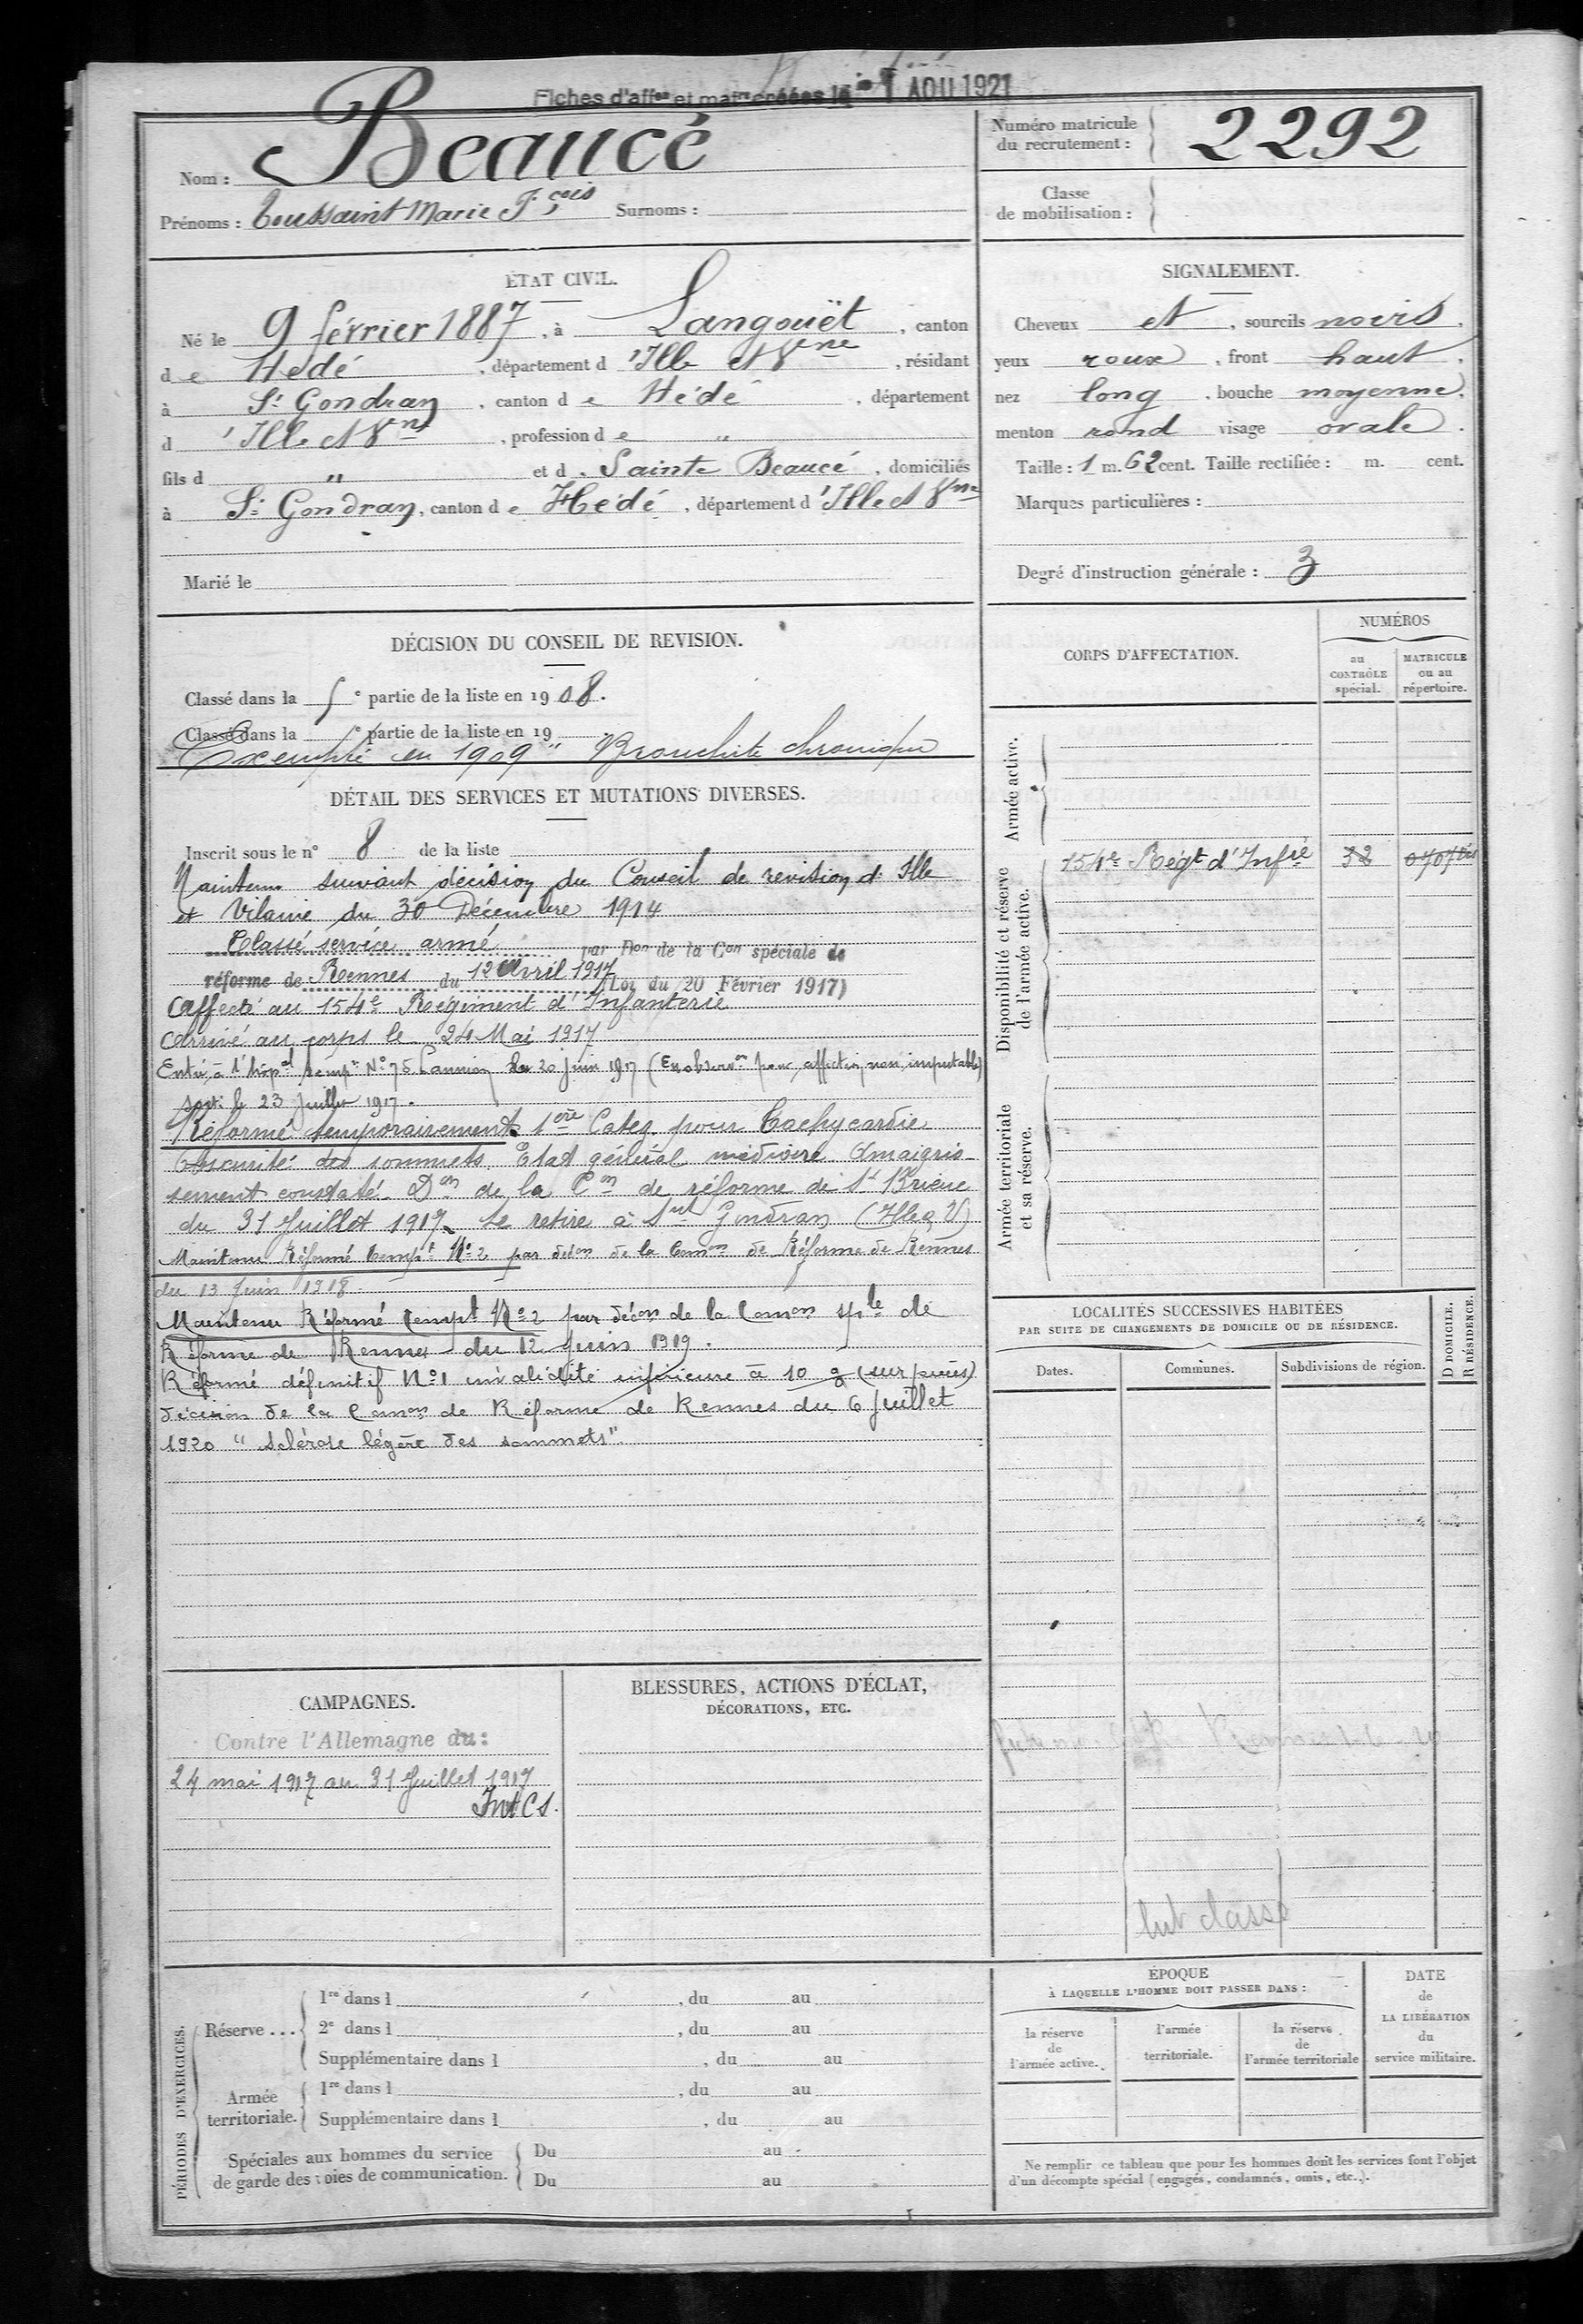 Fiches d'aff.on et mat.re créées le 1 AOU 1921
Nom : Beaucé
Prénoms : Toussaint Marie F.çois Surnoms :
Numéro matricule du recrutement : 2292
Classe de mobilisation :
ÉTAT CIVIL.
Né le 9 février 1887, à Langouët, canton
de Hédé, département d'Ille et Vne, résidant
à St Gondran, canton de Hédé, département
d'Ille et Vne, profession de "
fils d " et d. Sainte Beaucé, domiciliés
à St Gondran, canton de Hédé, département d'Ille et Vne
Marié le
SIGNALEMENT.
Cheveux et, sourcils noirs.
yeux roux, front haut.
nez long, bouche moyenne.
menton rond visage ovale.
Taille : 1 m. 62 cent. Taille rectifiée : m. cent.
Marques particulières :
Degré d'instruction générale : 3
DÉCISION DU CONSEIL DE REVISION.
Classé dans la 5e partie de la liste en 1908.
Classé dans la e partie de la liste en 19
Exempté en 1909 " Bronchite chronique
DÉTAIL DES SERVICES ET MUTATIONS DIVERSES.
Inscrit sous le n° 8 de la liste
Maintenu suivant décision du Conseil de revision d'Ille
et Vilaine du 30 Décembre 1914
Classé service armé par Don de la Con spéciale de
réforme de Rennes du 12 Avril 1917 (Loi du 20 Février 1917)
Affecté au 154e Régiment d'Infanterie
Arrivé au corps le 24 Mai 1917
Entré à l'hôpal temp.re N° 75 Lannion le 20 juin 1917 (En observon pour affection non imputable)
sorti le 23 Juillet 1917.
Réformé temporairement 1ère Catég. pour Tachycardie
Obscurité des sommets Etat général médiocre Amaigris-
sement constaté. Don de la Con de réforme de St Brieuc
du 31 Juillet 1917. Se retire à Snt Gondran (Ille & V)
Maintenu Réformé tempt N° 2 par déc.on de la Comon de Réforme de Rennes
du 13 Juin 1918.
Maintenu Réformé tempt N° 2 par décon de la Comon sple de
Réforme de Rennes du 12 Juin 1919.
Réformé définitif N° 1 invalidité inférieure à 10 % (sur pièces)
décision de la Comon de Réforme de Rennes du 6 Juillet
1920 "Sclérose légère des sommets".
CORPS D'AFFECTATION.
NUMÉROS
au CONTRÔLE spécial.
MATRICULE ou au répertoire.
Armée active.
Disponibilité et réserve de l'armée active.
154e Régt d'Infie 32
Armée territoriale et sa réserve.
LOCALITÉS SUCCESSIVES HABITÉES
PAR SUITE DE CHANGEMENTS DE DOMICILE OU DE RÉSIDENCE.
Dates. Communes. Subdivisions de région.
D DOMICILE. R RÉSIDENCE.
CAMPAGNES.
Contre l'Allemagne du :
24 mai 1917 au 31 Juillet 1917
Int CS.
BLESSURES, ACTIONS D'ÉCLAT,
DÉCORATIONS, ETC.
PÉRIODES D'EXERCICES.
Réserve ...
1re dans l , du au
2e dans l , du au
Supplémentaire dans l , du au
Armée territoriale.
1re dans l , du au
Supplémentaire dans l , du au
Spéciales aux hommes du service
de garde des voies de communication.
Du au
Du au
ÉPOQUE
À LAQUELLE L'HOMME DOIT PASSER DANS :
la réserve de l'armée active.
l'armée territoriale.
la réserve de l'armée territoriale
DATE de LA LIBÉRATION du service militaire.
Ne remplir ce tableau que pour les hommes dont les services font l'objet
d'un décompte spécial (engagés, condamnés, omis, etc.).